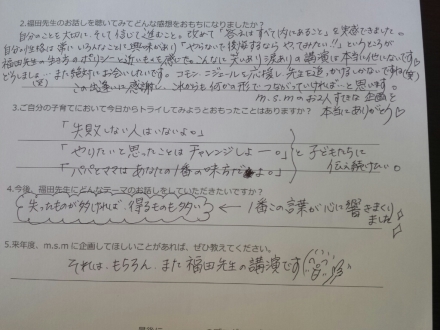 2.福田先生のお話しを聴いてみてどんな感想をおもちになりましたか？
自分のことを大切に、そして信じて進むこと。改めて「答えはすべて内にあること」を実感できました。
自分の
いろんなことに興味があり「やらないで後悔するなら やってみたい!!」というところが
福田先生の
近い
こんなに笑いあり涙ありの講演は本当に他にないです
また絶対にお会いしたいです。
この出逢いに感謝し これからも何かの形でつながっていければ…と思います。
m.s.mのお2人すてきな企画を
本当にありがとう♡
3.ご自分の子育てにおいて今日からトライしてみようとおもったことはありますか？
「失敗しない人はいないよ。」
「やりたいと思ったことはチャレンジしよー。」と子どもたちに
「パパとママはあなたの1番の味方だよ。」 伝え続けたい。
4.今後、福田先生にどんなテーマのお話しをしていただきたいですか？
失ったものが多ければ、得るものも多い ← 1番この言葉が心に響きまくり
ました
5.来年度、m.s.mに企画してほしいことがあれば、ぜひ教えてください。
それは、もちろん、また福田先生の講演です